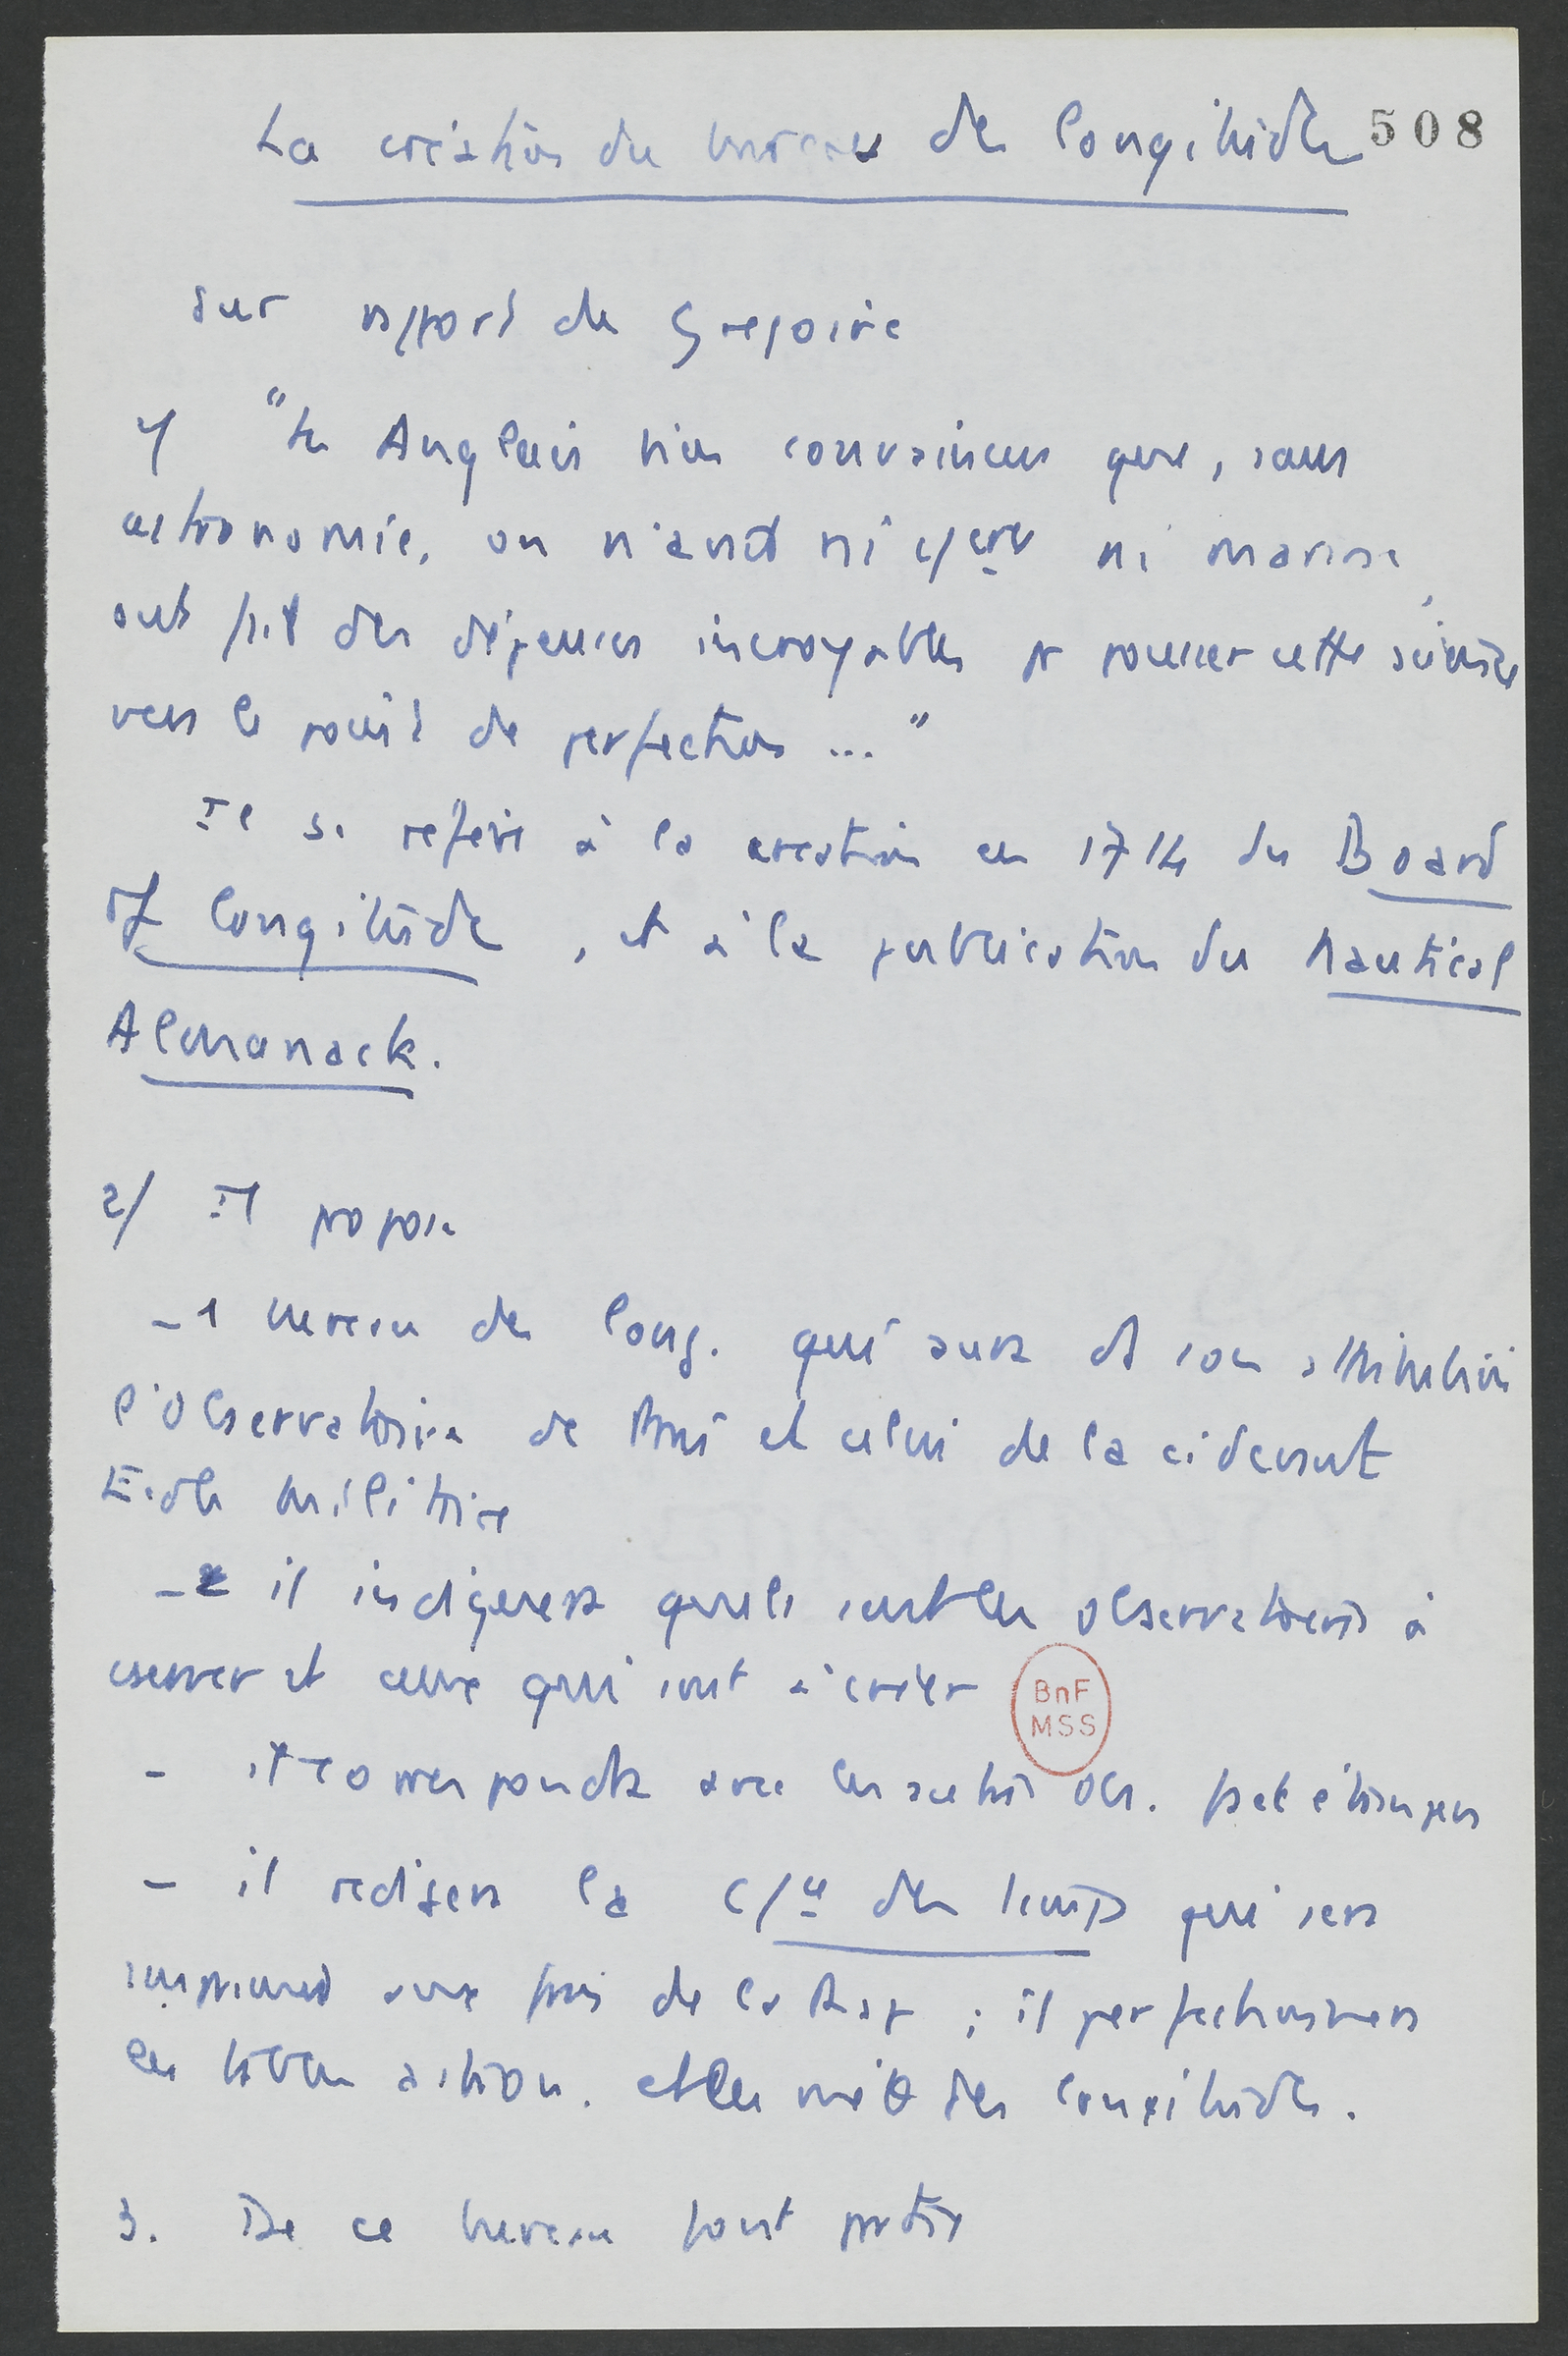 La création du bureau des longitudes 508
sur rapport de Grégoire
1/ "Les Anglais bien convaincus que, sans
astronomie, on n'avait ni cce ni marine,
ont fait des dépenses incroyables pr pousser cette science
vers le point de perfection ..."
Il se réfère à la création en 1714 du Board
of longitude, et à la publication du Nautical
Almanack.
2/ Il propose
- 1 bureau des long. qui aura ds son attribution
l'observatoire de Paris et celui de la ci devant
Ecole militaire
- il indiquera quels sont les observatoires à
conserver et ceux qui sont à créer
- il correspondra avec les autres obs. fr et étrangers
- il rédigera la c/ce des temps qui sera
imprimée aux frais de la Rep ; il perfectionnera
les tables astron. et les méth des longitudes.
3. De ce bureau font partie
BnF
MSS